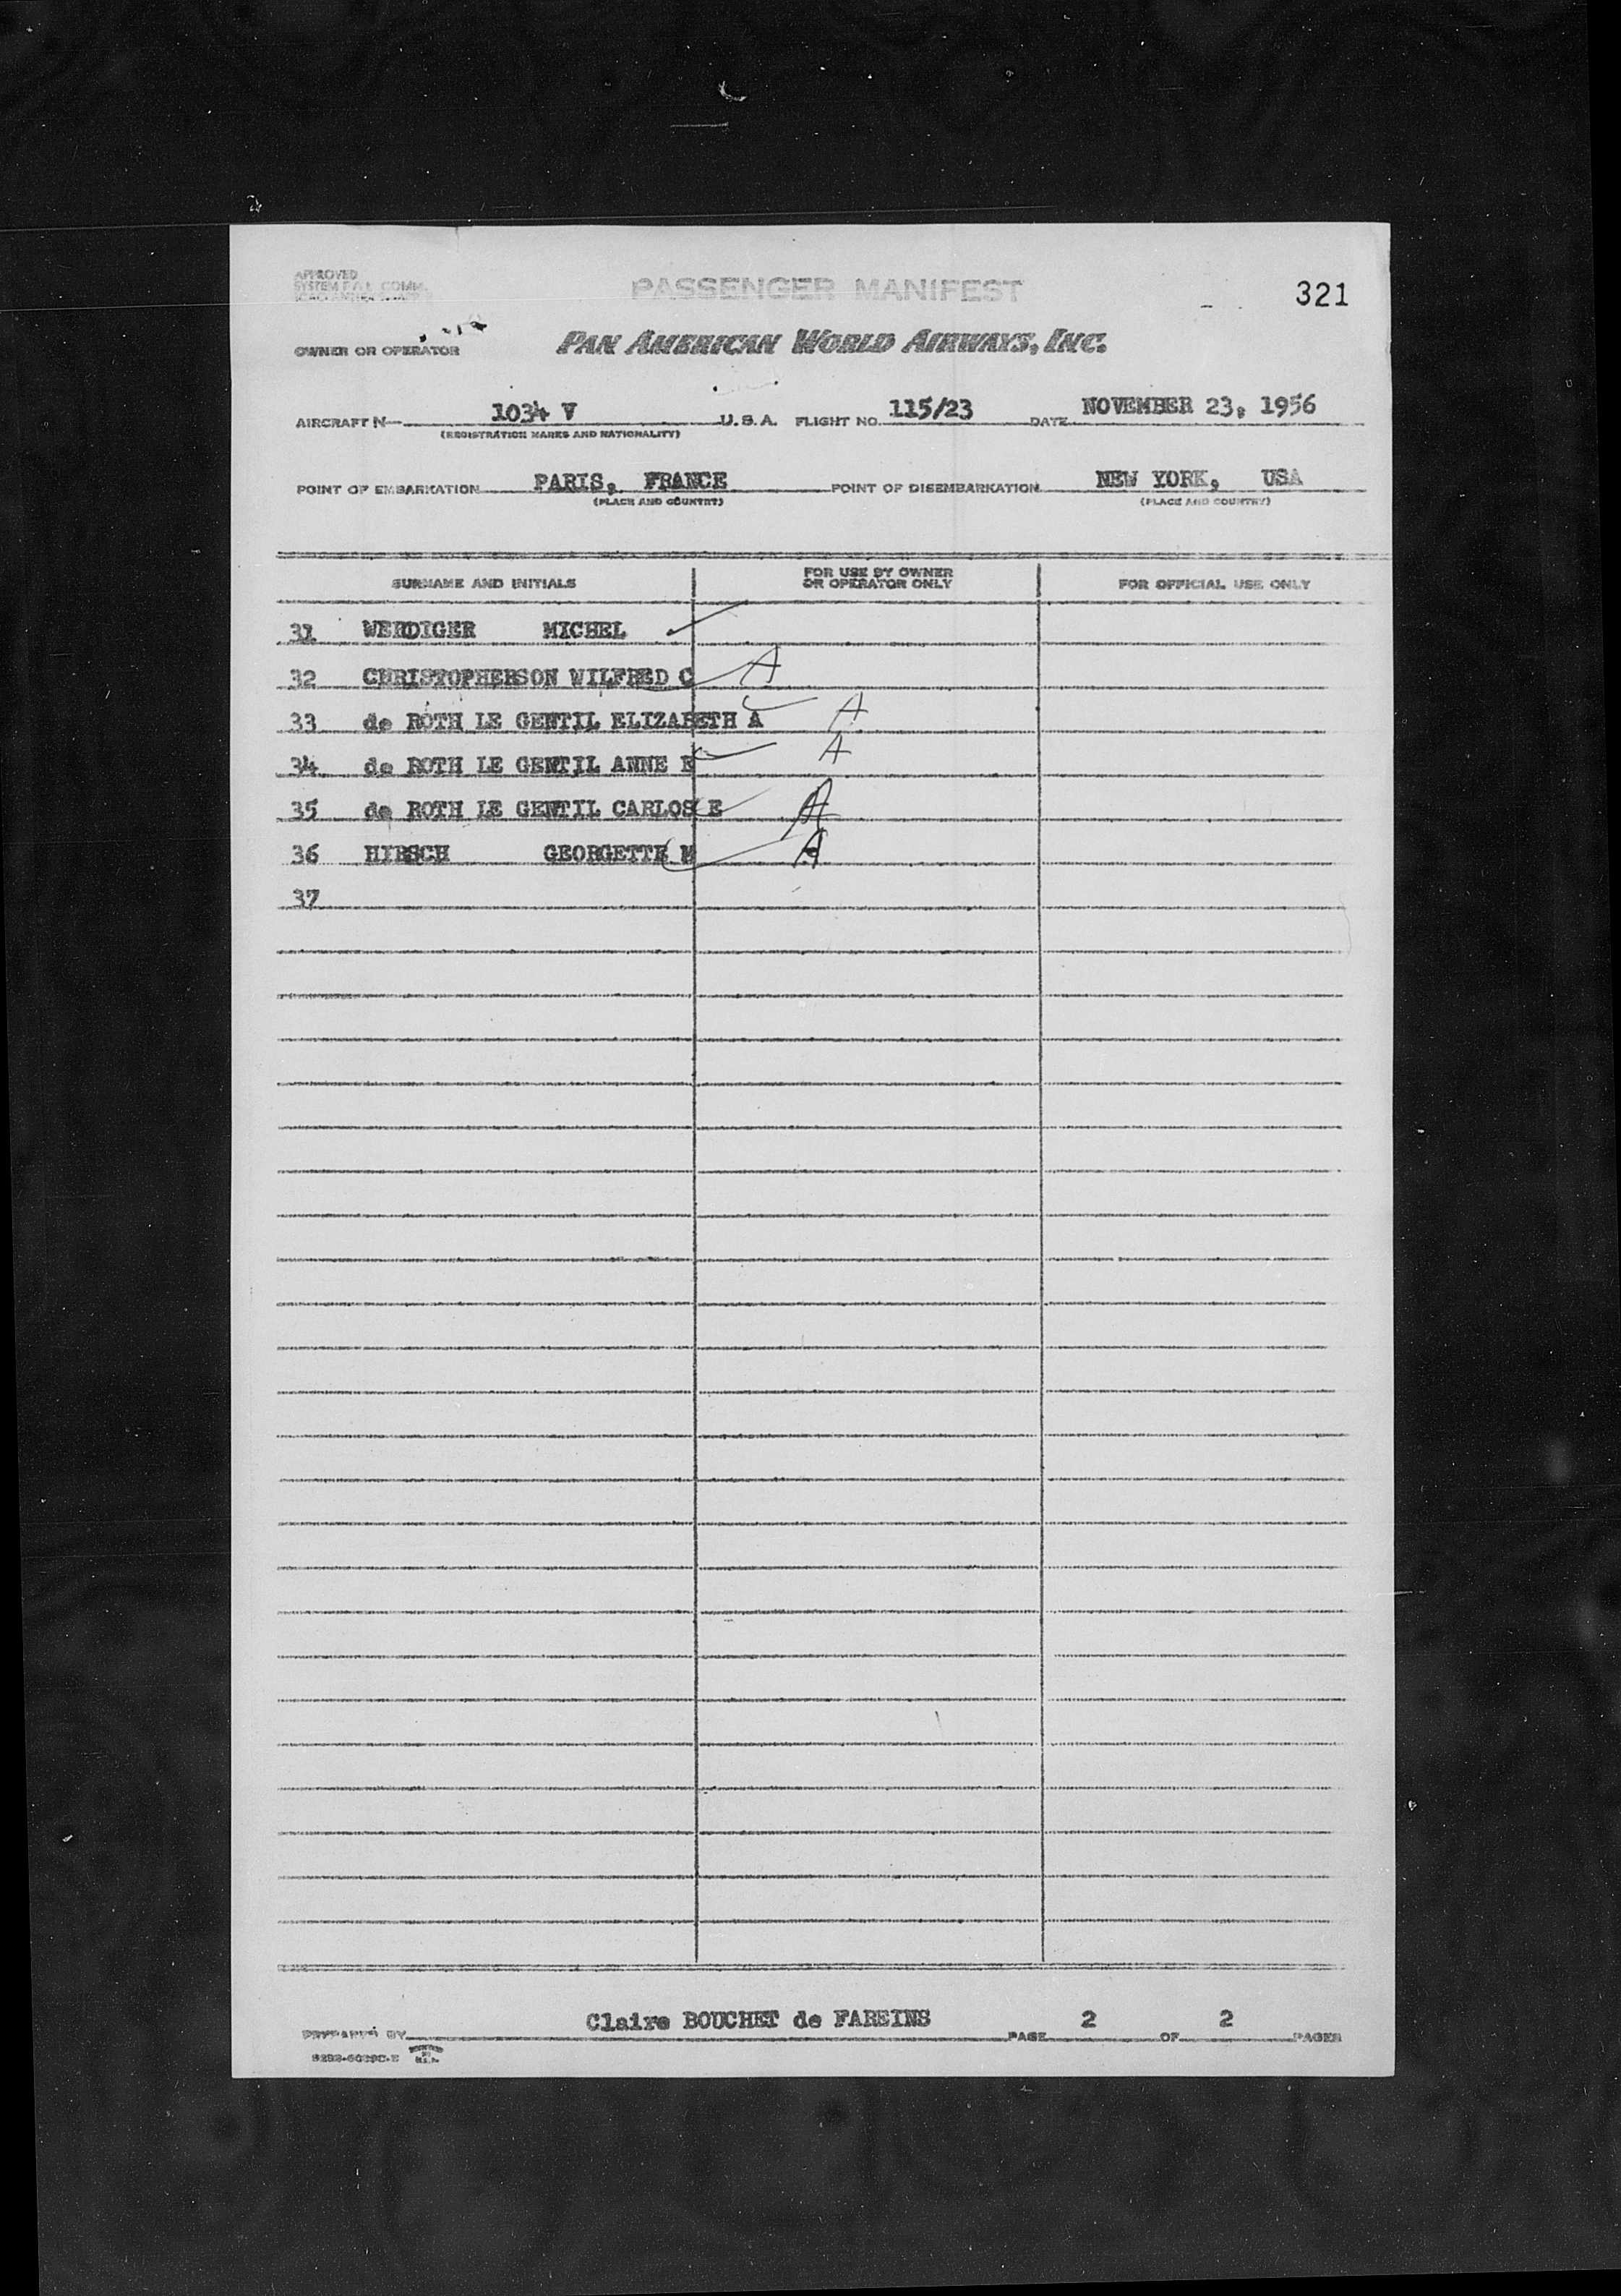 APPROVED
SYSTEM F A L COMM.
PASSENGER MANIFEST
321
OWNER OR OPERATOR
PAN AMERICAN WORLD AIRWAYS, INC.
AIRCRAFT N— 1034 V U.S.A. FLIGHT NO. 115/23 DATE NOVEMBER 23, 1956
(REGISTRATION MARKS AND NATIONALITY)
POINT OF EMBARKATION PARIS, FRANCE POINT OF DISEMBARKATION NEW YORK, USA
(PLACE AND COUNTRY) (PLACE AND COUNTRY)
SURNAME AND INITIALS FOR USE BY OWNER OR OPERATOR ONLY FOR OFFICIAL USE ONLY
31 WERDIGER MICHEL
32 CHRISTOPHERSON WILFRED C A
33 de ROTH LE GENTIL ELIZABETH A A
34 de ROTH LE GENTIL ANNE E A
35 de ROTH LE GENTIL CARLOS E A
36 HIRSCH GEORGETTE M A
37
PREPARED BY Claire BOUCHET de FAREINS PAGE 2 OF 2 PAGES